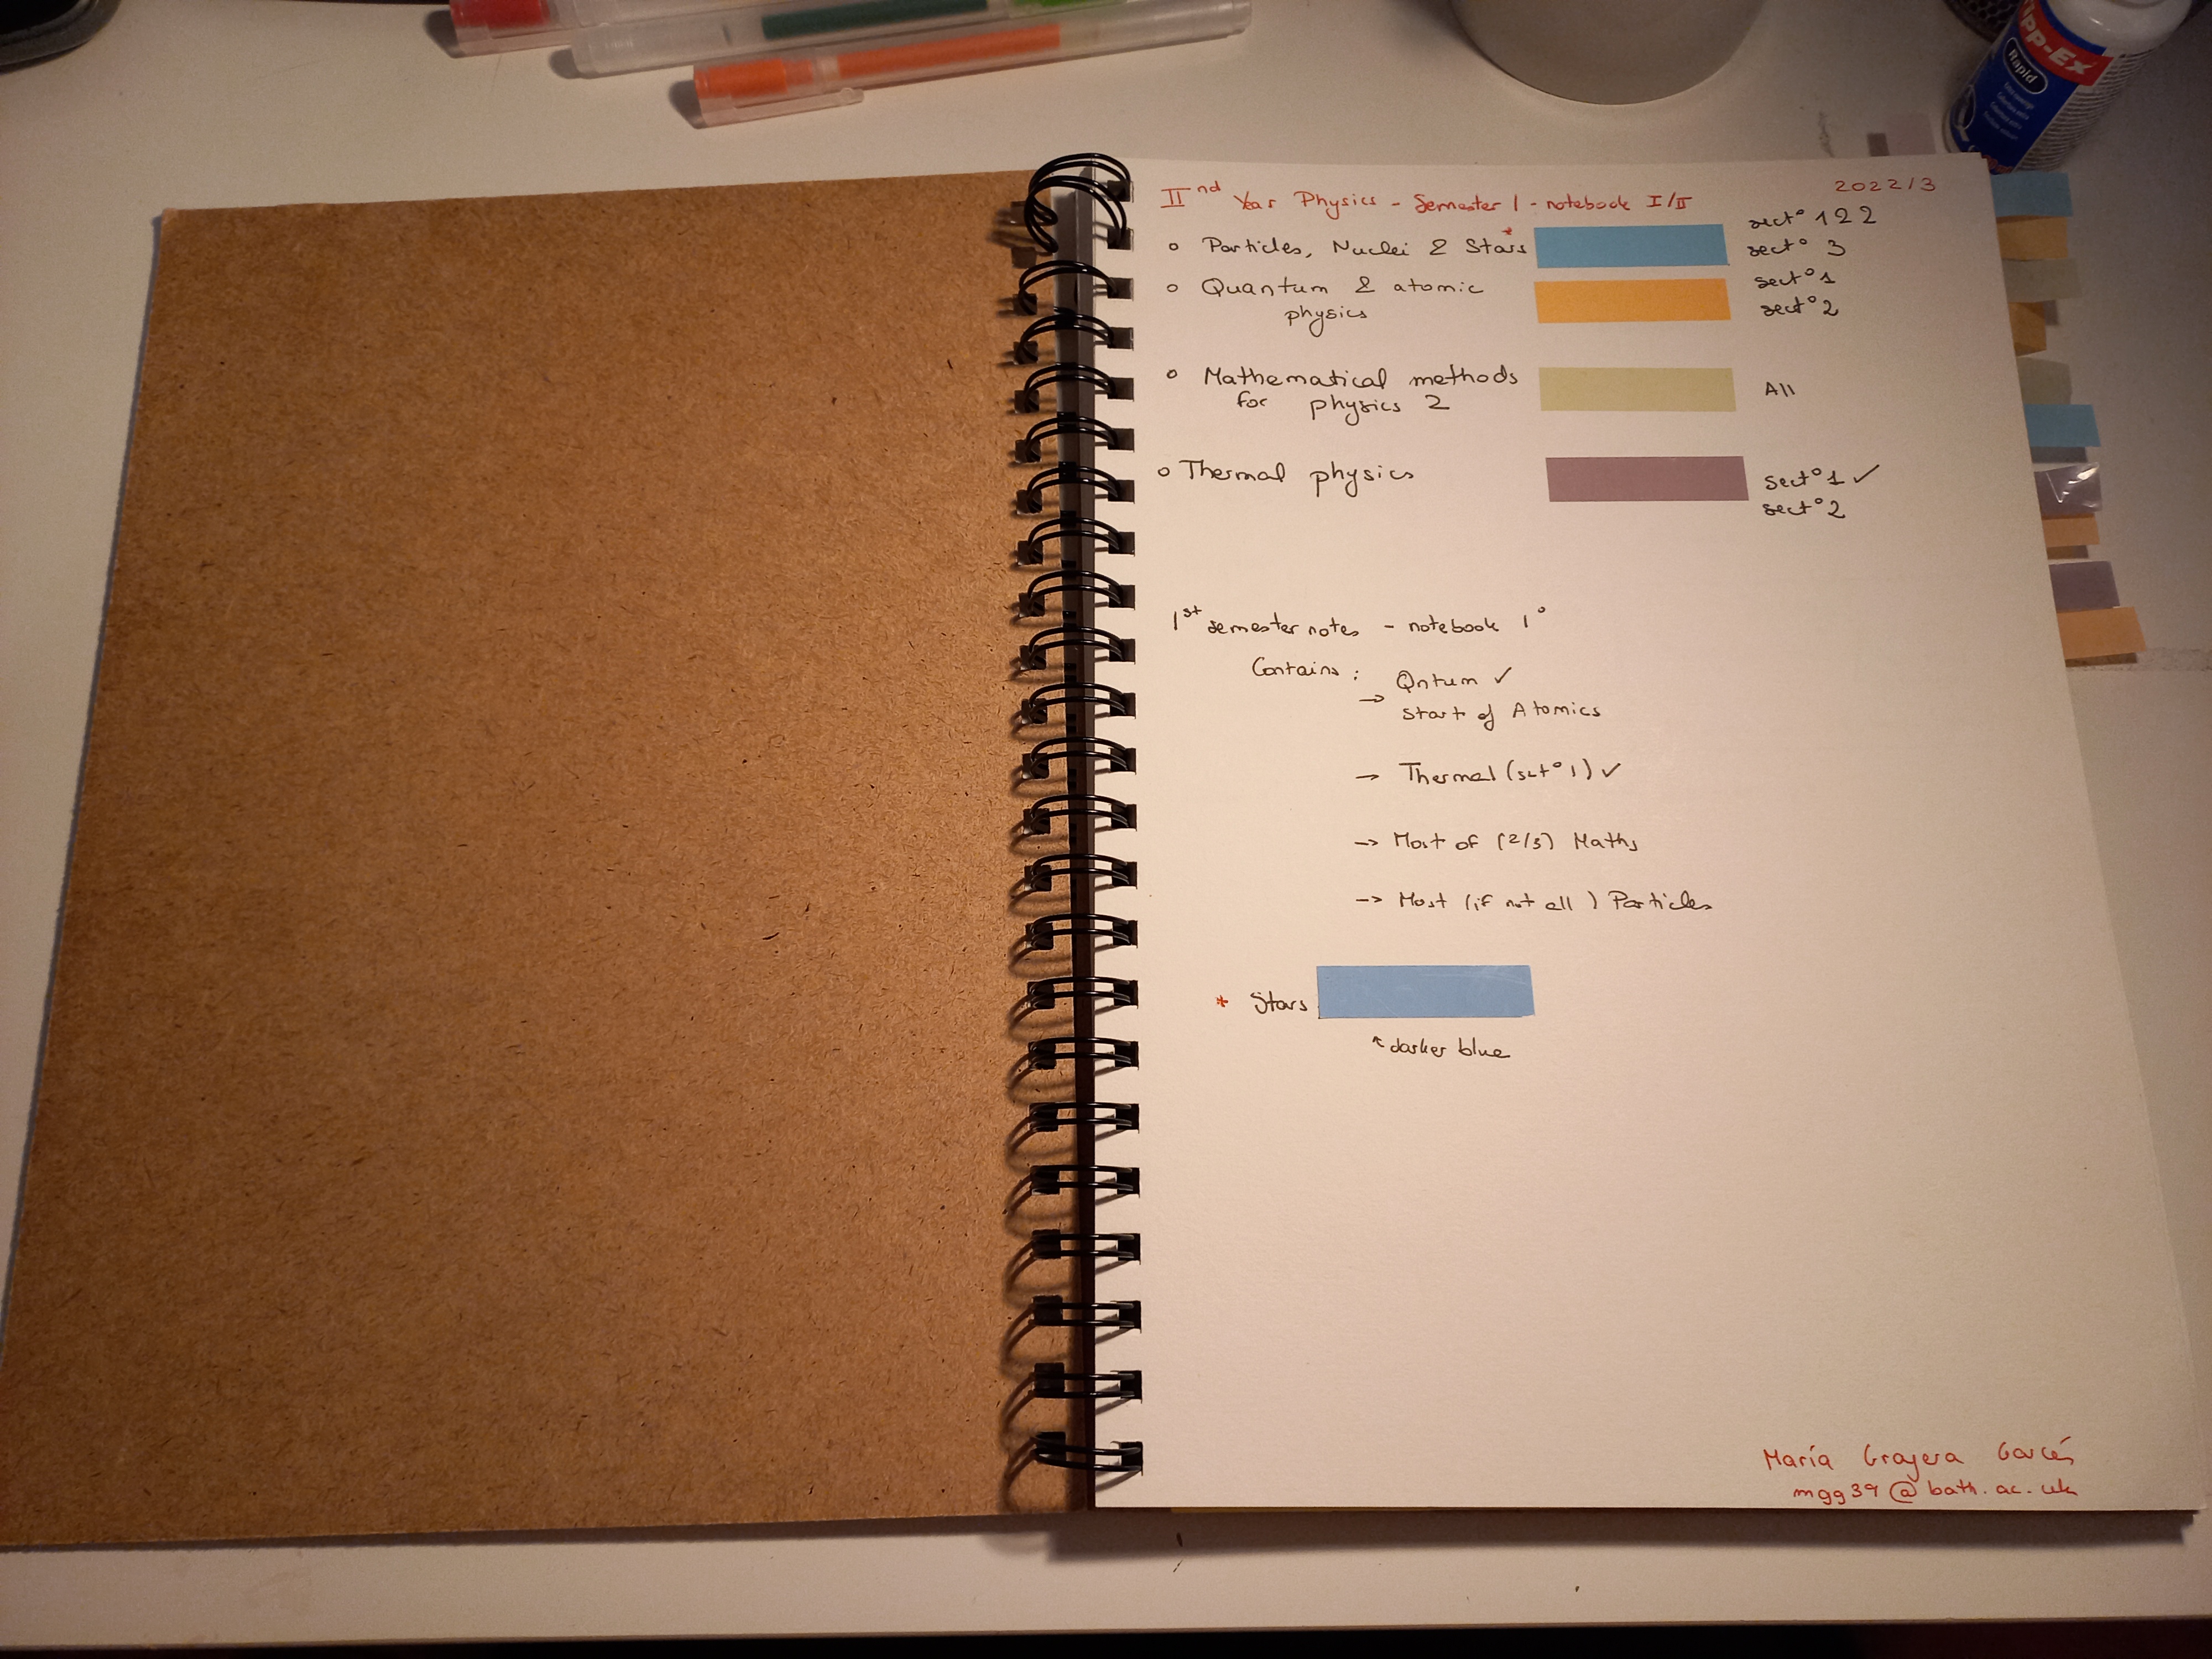 2022/3
IInd Year Physics - Semester 1 - notebook I/II
o Particles, Nuclei & Stars* sect° 1 & 2
sect° 3
o Quantum & atomic sect° 1
physics sect° 2
o Mathematical methods All
for physics 2
o Thermal physics sect° 1 ✓
sect° 2
1st semester notes - notebook 1°
Contains: -> Qntum ✓
Start of Atomics
-> Thermal (sct° 1) ✓
-> Most of (2/3) Maths
-> Most (if not all) Particles
* Stars
↑ darker blue
María Grayera Garcés
mgg39@bath.ac.uk
Tipp-Ex
Rapid